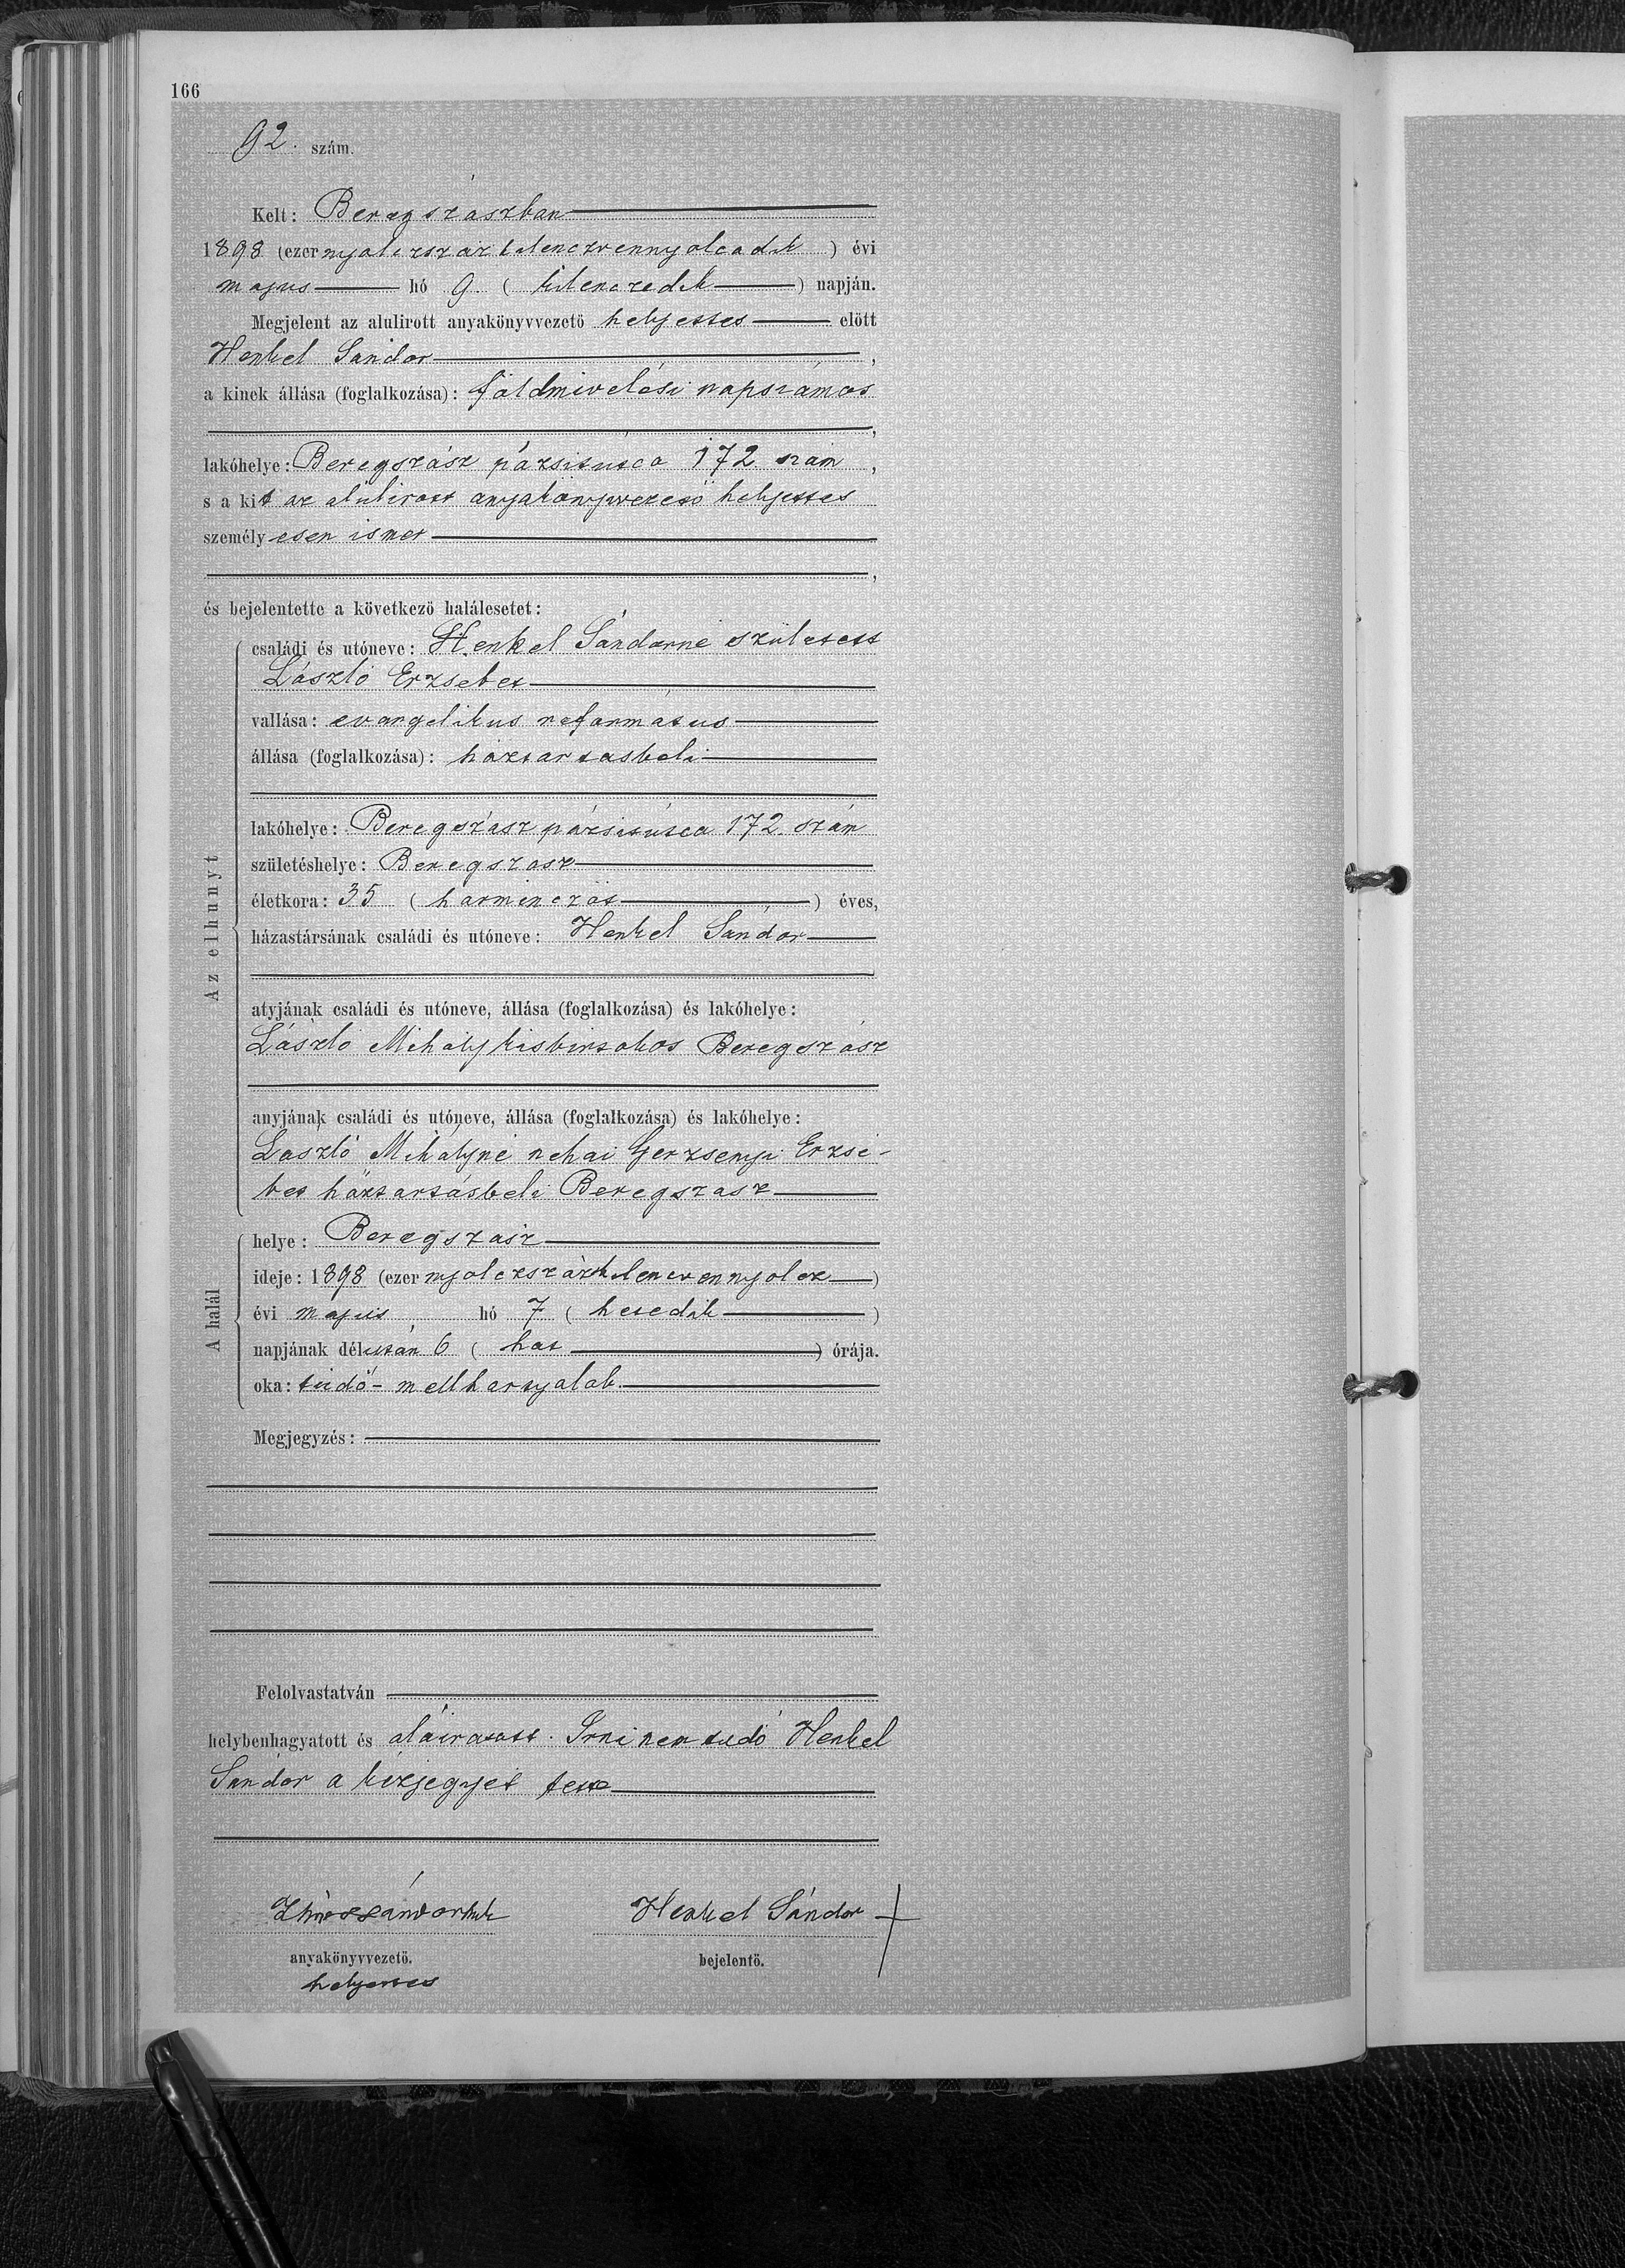 166
92. szám.
Kelt: Beregszászban
1898 (ezernyolczszázkilenczvennyolcadik) évi
majus hó 9. (kilenczedik) napján.
Megjelent az alulirott anyakönyvvezetö helyettes elött
Henkel Sándor,
a kinek állása (foglalkozása): földmivelési napszámos
,
lakóhelye: Beregszász pázsitutca 172 szám,
s a kit az alulirott anyakönyvvezető helyettes
személyesen ismer
,
és bejelentette a következö halálesetet:
Az elhunyt
családi és utóneve: Henkel Sándorné született
László Erzsebet
vallása: evangelikus reformatus
állása (foglalkozása): háztartasbeli
lakóhelye: Beregszász pázsitutca 172. szám
születéshelye: Beregszasz
életkora: 35 (harminczöt) éves,
házastársának családi és utóneve: Henkel Sándor
atyjának családi és utóneve, állása (foglalkozása) és lakóhelye:
László Mihály kisbirtokos Beregszász
anyjának családi és utóneve, állása (foglalkozása) és lakóhelye:
László Mihályné néhai Gerzsenyi Erzsé-
bet háztartásbeli Beregszasz
A halál
helye: Beregszász
ideje: 1898 (ezernyolczszázkilenczvennyolcz)
évi majus hó 7 (hetedik)
napjának délután 6 (hat) órája.
oka: tüdő-mellhartyalob.
Megjegyzés:
Felolvastatván
helybenhagyatott és aláiratott. Irni nem tudó Henkel
Sándor a kézjegyét tette
Henkel Sándor +
anyakönyvvezetö. bejelentö.
helyettes